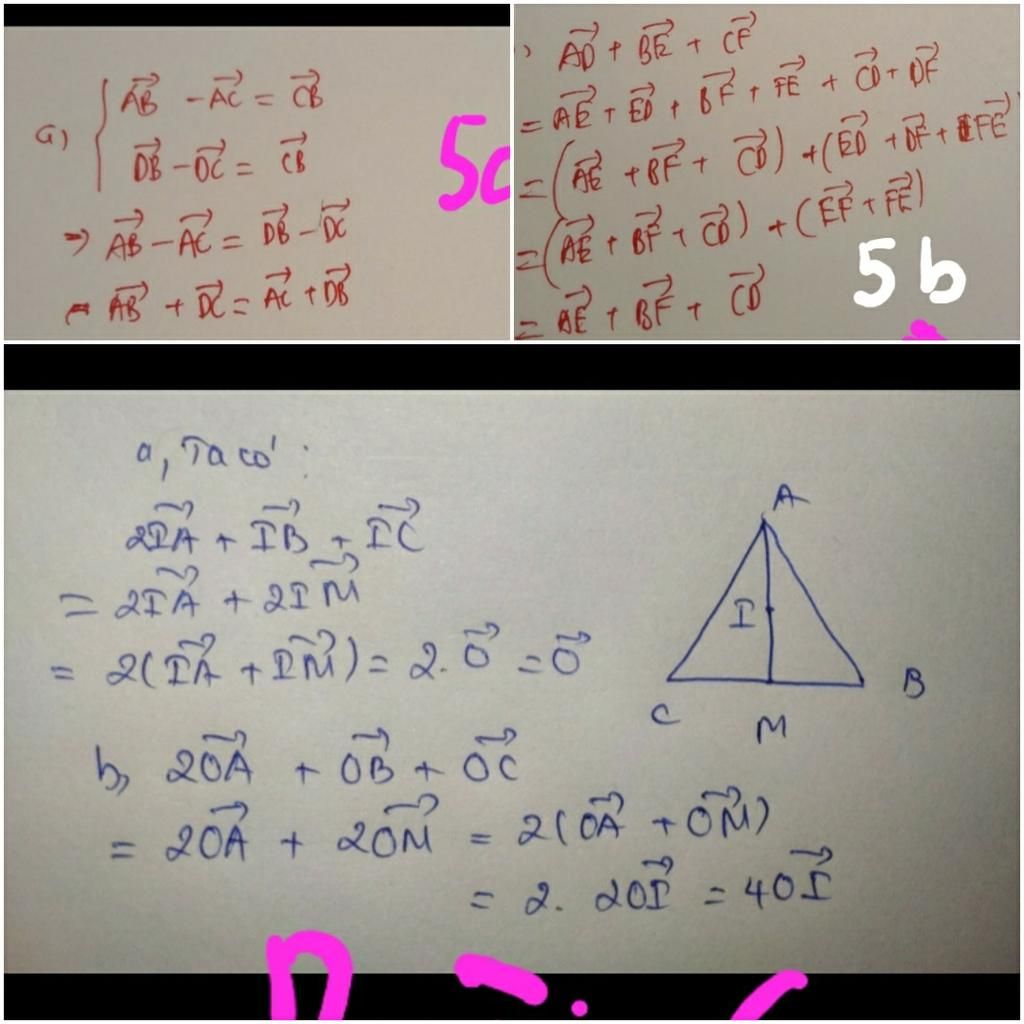 a) { $\overrightarrow{AB} - \overrightarrow{AC} = \overrightarrow{CB}$
$\overrightarrow{DB} - \overrightarrow{DC} = \overrightarrow{CB}$
$\Rightarrow \overrightarrow{AB} - \overrightarrow{AC} = \overrightarrow{DB} - \overrightarrow{DC}$
$= \overrightarrow{AB} + \overrightarrow{DC} = \overrightarrow{AC} + \overrightarrow{DB}$
5
) $\overrightarrow{AD} + \overrightarrow{BE} + \overrightarrow{CF}$
$= \overrightarrow{AE} + \overrightarrow{ED} + \overrightarrow{BF} + \overrightarrow{FE} + \overrightarrow{CD} + \overrightarrow{DF}$
$= (\overrightarrow{AE} + \overrightarrow{BF} + \overrightarrow{CD}) + (\overrightarrow{ED} + \overrightarrow{DF} + \overrightarrow{FE}$
$= (\overrightarrow{AE} + \overrightarrow{BF} + \overrightarrow{CD}) + (\overrightarrow{EF} + \overrightarrow{FE})$
$= \overrightarrow{AE} + \overrightarrow{BF} + \overrightarrow{CD}$
5b
a, Ta có :
$2\overrightarrow{IA} + \overrightarrow{IB} + \overrightarrow{IC}$
$= 2\overrightarrow{IA} + 2\overrightarrow{IM}$
$= 2(\overrightarrow{IA} + \overrightarrow{IM}) = 2.\overrightarrow{0} = \overrightarrow{0}$
A
I
C
M
B
b, $2\overrightarrow{OA} + \overrightarrow{OB} + \overrightarrow{OC}$
$= 2\overrightarrow{OA} + 2\overrightarrow{OM} = 2(\overrightarrow{OA} + \overrightarrow{OM})$
$= 2. 2\overrightarrow{OI} = 4\overrightarrow{OI}$